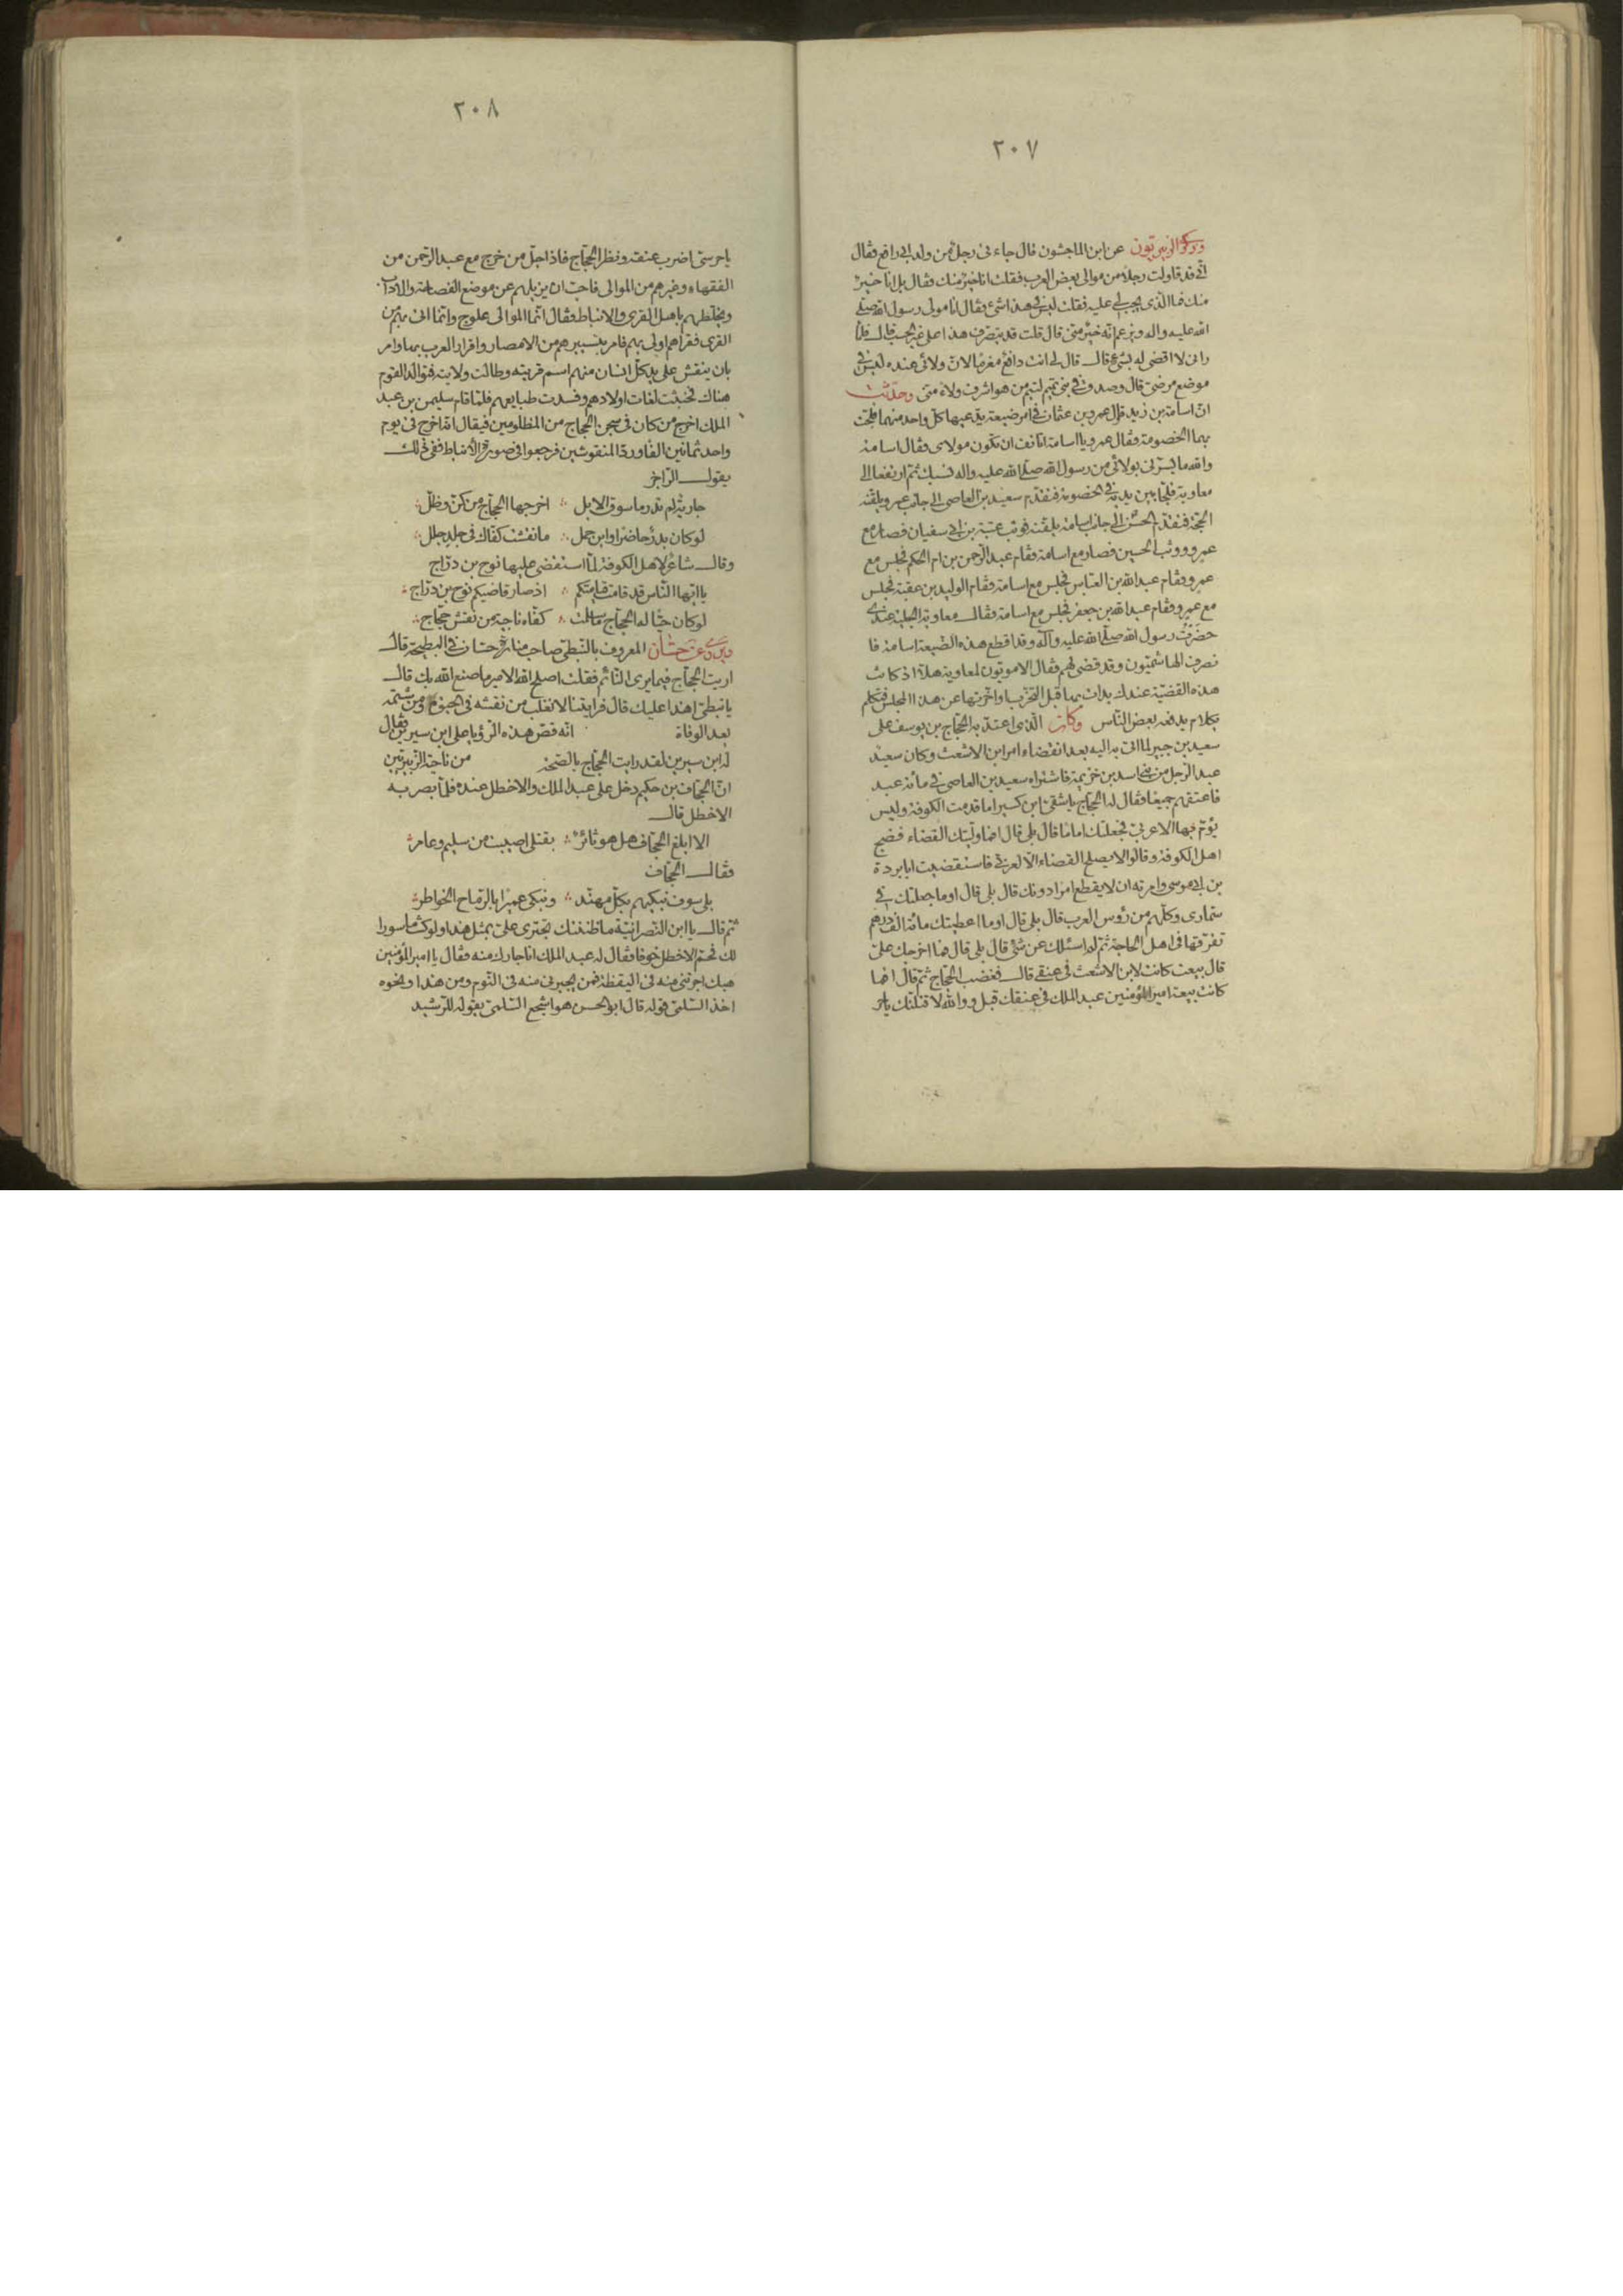 ٢٠٧
وذكر الزبيريون عن ابن الماجشون قال جاءنى رجل من ولد ابى رافع فقال
انى قد قاولت رجلا من موالى بعض العرب فقلت انا خير منك فقال بل انا خير
منك فما الذى يجب لى عليه فقلت ليس فى هذا شئ فقال انا مولى رسول الله صلى
الله عليه واله ويزعم انه خير منى قال قلت قد يتصرف هذا على غير الحسب قال فلما
رانى لا اقضى له بشئ قال قال لى انت دافع مغرما لان ولائى عنده ليس فى
موضع مرضى قال وصدق فى بنى تيم لتيم من هو اشرف ولاء منى وحدثت
ان اسامة بن زيد قاول عمرو بن عثمان فى امر ضيعة يدعيها كل واحد منهما فلجت
بهما الخصومة فقال عمرو يا اسامة اتانف ان تكون مولاى فقال اسامة
والله ما يسرنى بولائى من رسول الله صلى الله عليه واله نسبك ثم ارتفعا الى
معاوية فلجا بين يديه فى الخصومة فتقدم سعيد بن العاصى الى جانب عمرو يلقنه
الحجة فتقدم الحسن الى جانب اسامة يلقنه فوثب عتبة بن ابى سفيان فصار مع
عمرو ووثب الحسين فصار مع اسامة وقام عبد الرحمن بن ام الحكم فجلس مع
عمرو وقام عبد الله بن العباس فجلس مع اسامة وقام الوليد بن عقبة فجلس
مع عمرو وقام عبد الله بن جعفر فجلس مع اسامة وقال معاوية الجلية عندى
حضرت رسول الله صلى الله عليه وآله وقد اقطع هذه الضيعة اسامة فا
نصرف الهاشميون وقد قضى لهم فقال الامويون لمعاوية هلا اذ كانت
هذه القضية عندك بدات بها قبل التحزب او اخرتها عن هذا المجلس فتكلم
بكلام يدفعه بعض الناس وكان الذى اعتد به الحجاج بن يوسف على
سعيد بن جبير لما اتى به اليه بعد انقضاء امر ابن الاشعث وكان سعيد
عبد الرجل من بنى اسد بن خزيمة فاشتراه سعيد بن العاصى فى مائة عبد
فاعتقهم جميعا فقال له الحجاج يا شقى ابن كسير اما قدمت الكوفة وليس
يؤم بها الا عربى فجعلتك اماما قال بلى قال افما وليتك القضاء فضج
اهل الكوفة وقالوا لا يصلح القضاء الا لعربى فاستقضيت ابا بردة
بن ابى موسى وامرته ان لا يقطع امرا دونك قال بلى قال اوما جعلتك فى
سمارى وكلهم من رؤس العرب قال بلى قال اوما اعطيتك مائة الف درهم
تفرقها فى اهل الحاجة ثم لم اسئلك عن شئ قال بلى قال فما اخرجك على
قال بيعت كانت لابن الاشعث فى عنقى قال فغضب الحجاج ثم قال افما
كانت بيعة امير المؤمنين عبد الملك فى عنقك قبل ووالله لاقتلنك يا
٢٠٨
يا حرسى اضرب عنقه ونظر الحجاج فاذا جل من خرج مع عبد الرحمن من
الفقهاء وغيرهم من الموالى فاحب ان يزيلهم عن موضع الفصاحة والاداب
ويخلطهم باهل القرى والانباط فقال انما الموالى علوج وانما اتى بهم من
القرى فقراهم اولى بهم فامر بتسييرهم من الامصار واقرار العرب بها وامر
بان ينقش على يد كل انسان منهم اسم قريته وطالت ولايته فتوالد القوم
هناك فخبثت لغات اولادهم وفسدت طبايعهم فلما قام سليمن بن عبد
الملك اخرج من كان فى سجن الحجاج من المظلومين فيقال انه اخرج فى يوم
واحد ثمانين الفا ورد المنقوشين فرجعوا فى صورة الانباط ففى ذلك
يقول الراجز
جارية لم تدر ما سوق الابل اخرجها الحجاج من كن وظل
لو كان بدر حاضرا وابن حمل ما نقشت كفاك فى جلد جلل
وقال شاعر لاهل الكوفة لما استقضى عليها نوح بن دراج
يا ايها الناس قد قامت قيامتكم اذ صار قاضيكم نوح بن دراج
لو كان حيا له الحجاج ما سلمت كفاه ناجية من نقش حجاج
ويروى عن حسان المعروف بالنبطى صاحب منارة حسان فى البطيحة قال
اريت الحجاج فيما يرى النائم فقلت اصلح الله الامير ما صنع الله بك قال
يا نبطى اهذا عليك قال فرايتنا لا نفلت من نقشه فى الحيوة ومن شتمه
بعد الوفاة انه قص هذه الرؤيا على ابن سيرين فقال
له ابن سيرين لقد رايت الحجاج بالصحة من ناحية الزبيريين
ان الجحاف بن حكيم دخل على عبد الملك والاخطل عنده فلما بصر به
الاخطل قال
الا ابلغ الجحاف هل هو ثائر بقتلى اصيبت من سليم وعامر
فقال الجحاف
بلى سوف نبكيهم بكل مهند ونبكى عميرا بالرماح الخواطر
ثم قال يا ابن النصرانية ما ظننتك تجترى على بمثل هذا ولو كنت ماسورا
لك فحم الاخطل خوفا فقال له عبد الملك انا جارك منه فقال يا امير المؤمنين
هبك اجرتنى منه فى اليقظة فمن يجيرنى منه فى النوم ومن هذا ونحوه
اخذ السلمى قوله قال ابو الحسن هو اشجع السلمى يقوله للرشيد